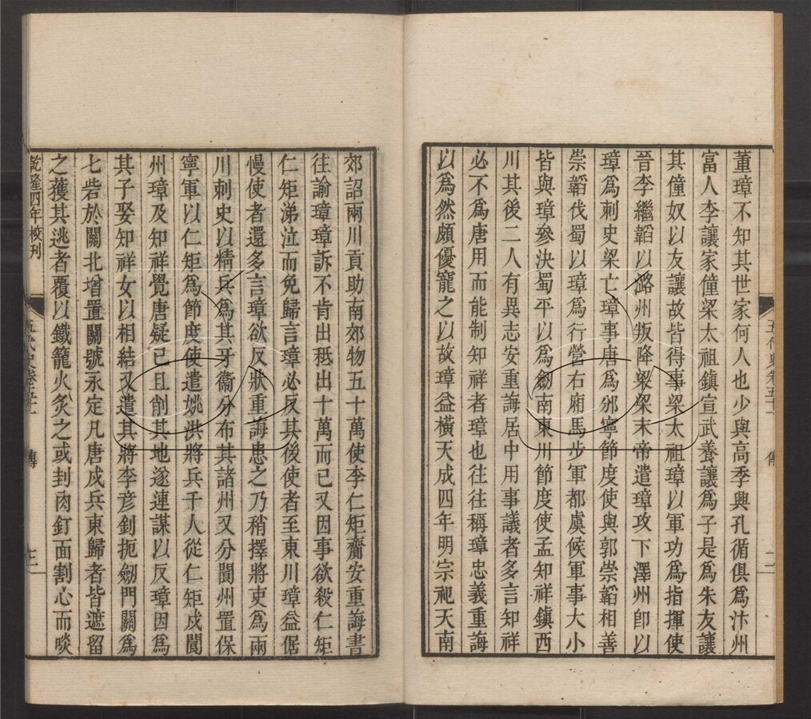 董璋不知其世家何人也少與高季興孔循俱爲汴州
富人李讓家僮梁太祖鎮宣武養讓爲子是爲朱友讓
其僮奴以友讓故皆得事梁太祖璋以軍功爲指揮使
晉李繼韜以潞州叛降梁梁末帝遣璋攻下澤州卽以
璋爲刺史梁亡璋事唐爲邠寧節度使與郭崇韜相善
崇韜伐蜀以璋爲行營右廂馬步軍都虞候軍事大小
皆與璋參決蜀平以爲劒南東川節度使孟知祥鎮西
川其後二人有異志安重誨居中用事議者多言知祥
必不爲唐用而能制知祥者璋也往往稱璋忠義重誨
以爲然頗優寵之以故璋益橫天成四年明宗祀天南
郊詔兩川貢助南郊物五十萬使李仁矩齎安重誨書
往諭璋璋訴不肯出秪出十萬而已又因事欲殺仁矩
仁矩涕泣而免歸言璋必反其後使者至東川璋益倨
慢使者還多言璋欲反狀重誨患之乃稍擇將吏爲兩
川刺史以精兵爲其牙衞分布其諸州又分閬州置保
寧軍以仁矩爲節度使遣姚洪將兵千人從仁矩戍閬
州璋及知祥覺唐疑己且削其地遂連謀以反璋因爲
其子娶知祥女以相結又遣其將李彥釗扼劒門關爲
七砦於關北增置關號永定凡唐戍兵東歸者皆遮留
之獲其逃者覆以鐵籠火炙之或刲肉釘面割心而啖
乾隆四年校刊
五代史卷五十一 傳